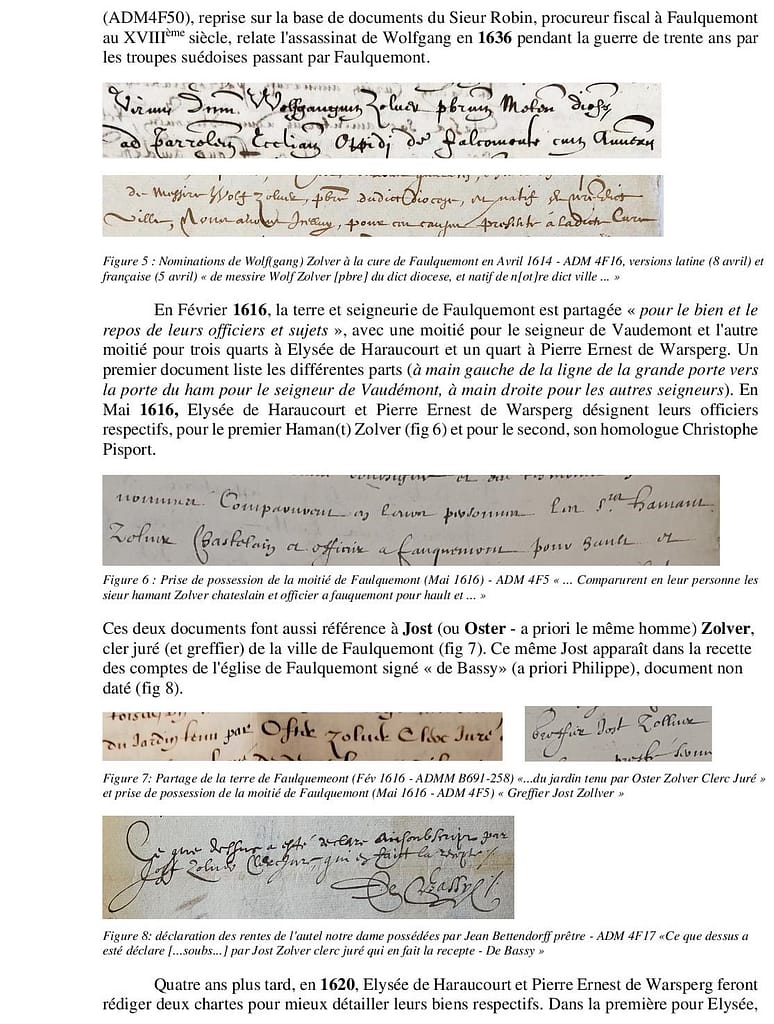 (ADM4F50), reprise sur la base de documents du Sieur Robin, procureur fiscal à Faulquemont
au XVIIIème siècle, relate l'assassinat de Wolfgang en 1636 pendant la guerre de trente ans par
les troupes suédoises passant par Faulquemont.
Virum Dnm Wolfgangum Zolver pbrum Meten dioss
ad parrolem Eccliam Oppidi de falcomonte cum Annexis
de Messire Wolf Zolver, pbre dudict diocese, et natif de nre dict
ville, pour cu causer presente à ladicte Cure
Figure 5 : Nominations de Wolf(gang) Zolver à la cure de Faulquemont en Avril 1614 - ADM 4F16, versions latine (8 avril) et
française (5 avril) « de messire Wolf Zolver [pbre] du dict diocese, et natif de n[ot]re dict ville ... »
En Février 1616, la terre et seigneurie de Faulquemont est partagée « pour le bien et le
repos de leurs officiers et sujets », avec une moitié pour le seigneur de Vaudemont et l'autre
moitié pour trois quarts à Elysée de Haraucourt et un quart à Pierre Ernest de Warsperg. Un
premier document liste les différentes parts (à main gauche de la ligne de la grande porte vers
la porte du ham pour le seigneur de Vaudémont, à main droite pour les autres seigneurs). En
Mai 1616, Elysée de Haraucourt et Pierre Ernest de Warsperg désignent leurs officiers
respectifs, pour le premier Haman(t) Zolver (fig 6) et pour le second, son homologue Christophe
Pisport.
Comparurent en leurs personnes les sr hamant
Zolver Chastelain et officier a fauquemont pour hault et
Figure 6 : Prise de possession de la moitié de Faulquemont (Mai 1616) - ADM 4F5 « ... Comparurent en leur personne les
sieur hamant Zolver chateslain et officier a fauquemont pour hault et ... »
Ces deux documents font aussi référence à Jost (ou Oster - a priori le même homme) Zolver,
cler juré (et greffier) de la ville de Faulquemont (fig 7). Ce même Jost apparaît dans la recette
des comptes de l'église de Faulquemont signé « de Bassy» (a priori Philippe), document non
daté (fig 8).
du Jardin tenu par Oster Zolver Clerc Juré
Greffier Jost Zollver
Figure 7: Partage de la terre de Faulquemeont (Fév 1616 - ADMM B691-258) «...du jardin tenu par Oster Zolver Clerc Juré »
et prise de possession de la moitié de Faulquemont (Mai 1616 - ADM 4F5) « Greffier Jost Zollver »
Ce que dessus a esté declare par
Jost Zolver Clerc Juré qui en faict la recept
De Bassy
Figure 8: déclaration des rentes de l'autel notre dame possédées par Jean Bettendorff prêtre - ADM 4F17 «Ce que dessus a
esté déclare [...soubs...] par Jost Zolver clerc juré qui en fait la recepte - De Bassy »
Quatre ans plus tard, en 1620, Elysée de Haraucourt et Pierre Ernest de Warsperg feront
rédiger deux chartes pour mieux détailler leurs biens respectifs. Dans la première pour Elysée,